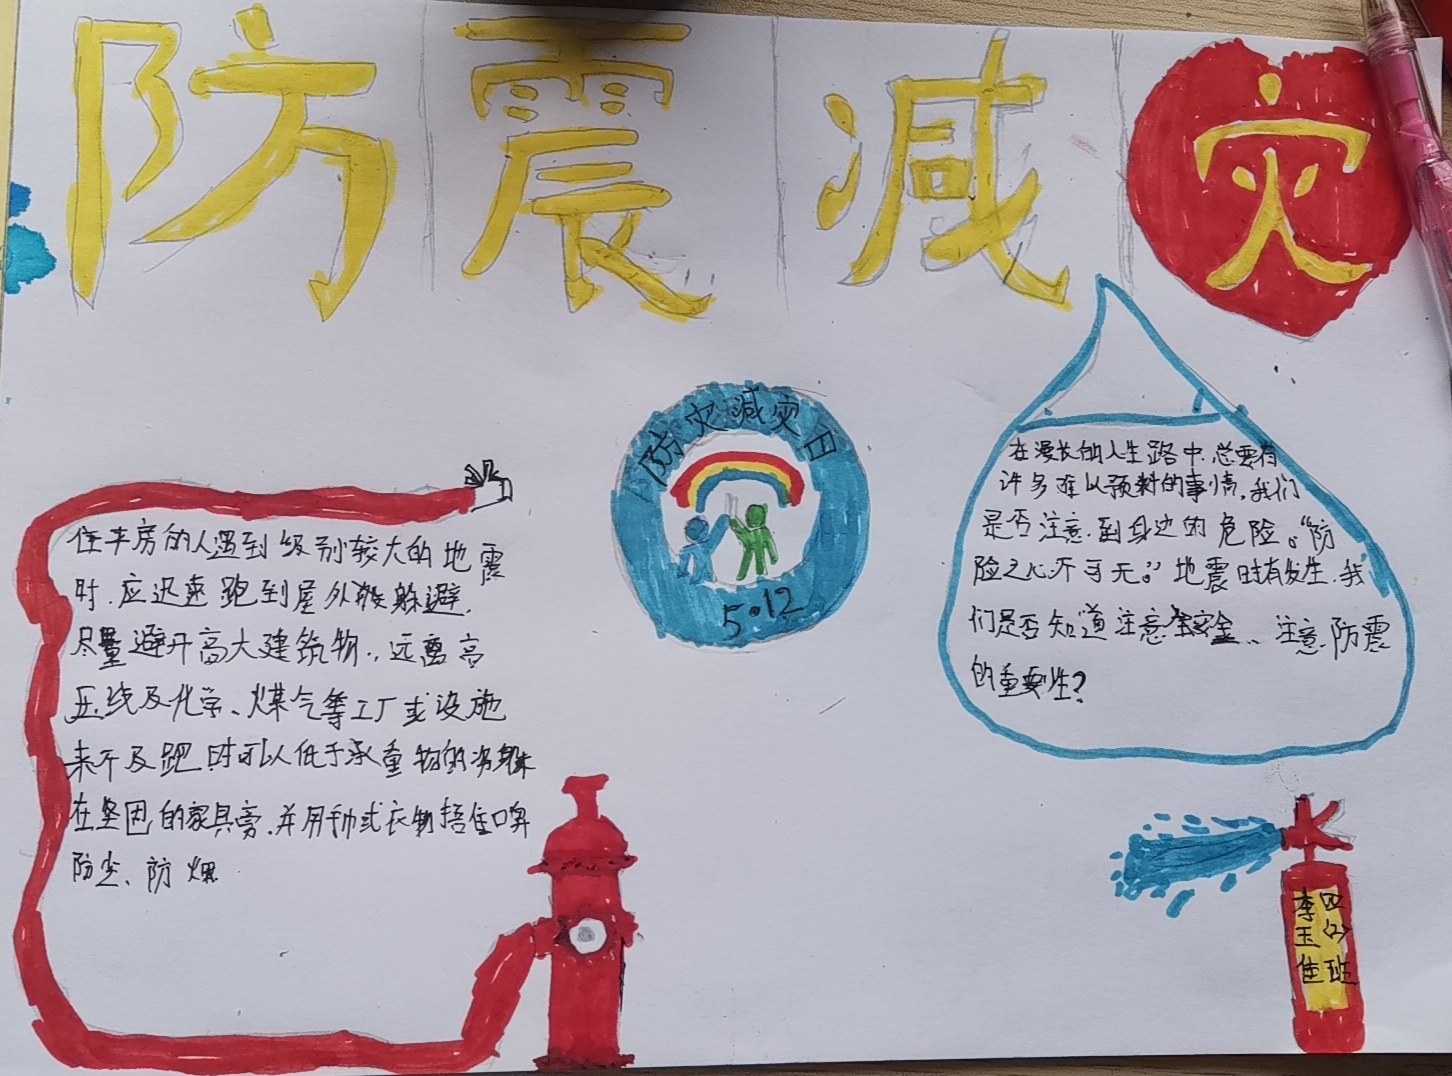 防震减灾
防灾减灾日
5.12
住平房的人遇到级别较大的地震
时.应迅速跑到屋外躲避.
尽量避开高大建筑物.,远离高
压线及化学、煤气等工厂或设施
来不及跑时可以低于承重物的
在坚固的家具旁.并用手或衣物捂住口鼻
防尘、防烟
在漫长的人生路中.总要有
许多难以预料的事情.我们
是否注意到身边的危险。“防
险之心不可无。”地震时有发生.我
们是否知道注意安全、注意防震
的重要性?
四(2)班
李玉佳